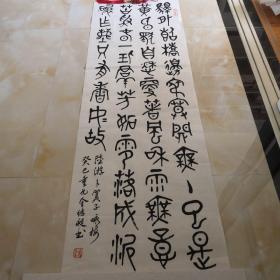 驛外斷橋邊寂寞開無主已是
黃昏獨自愁更著風和雨無意
苦爭春一任羣芳妒零落成泥
碾作塵只有香如故
陸游卜算子咏梅
癸巳重九余培 書